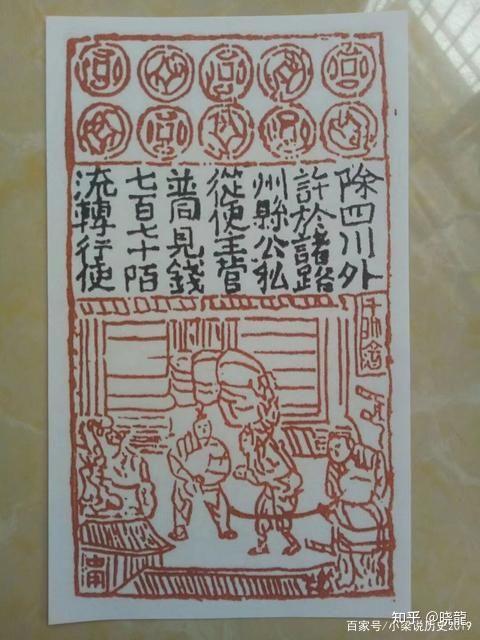 除四川外
許於諸路
州縣公私
從便主管
並同見錢
七百七十陌
流轉行使
千斯倉
知乎 @晓龍
百家号/小梁说历史2019